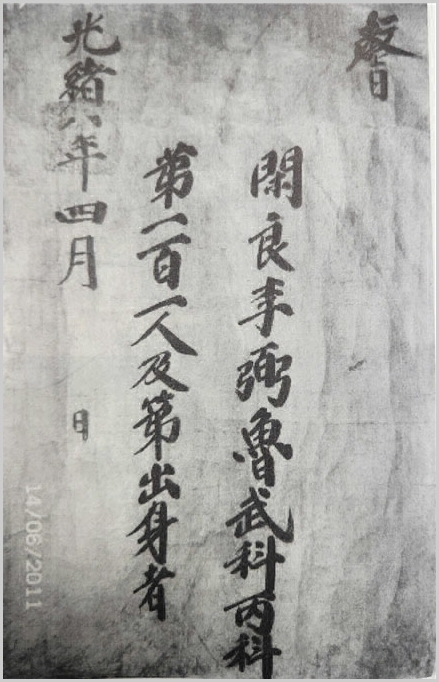 敎旨
閑良李弼魯武科丙科
第一百一人及第出身者
光緒八年四月 日
14/06/2011